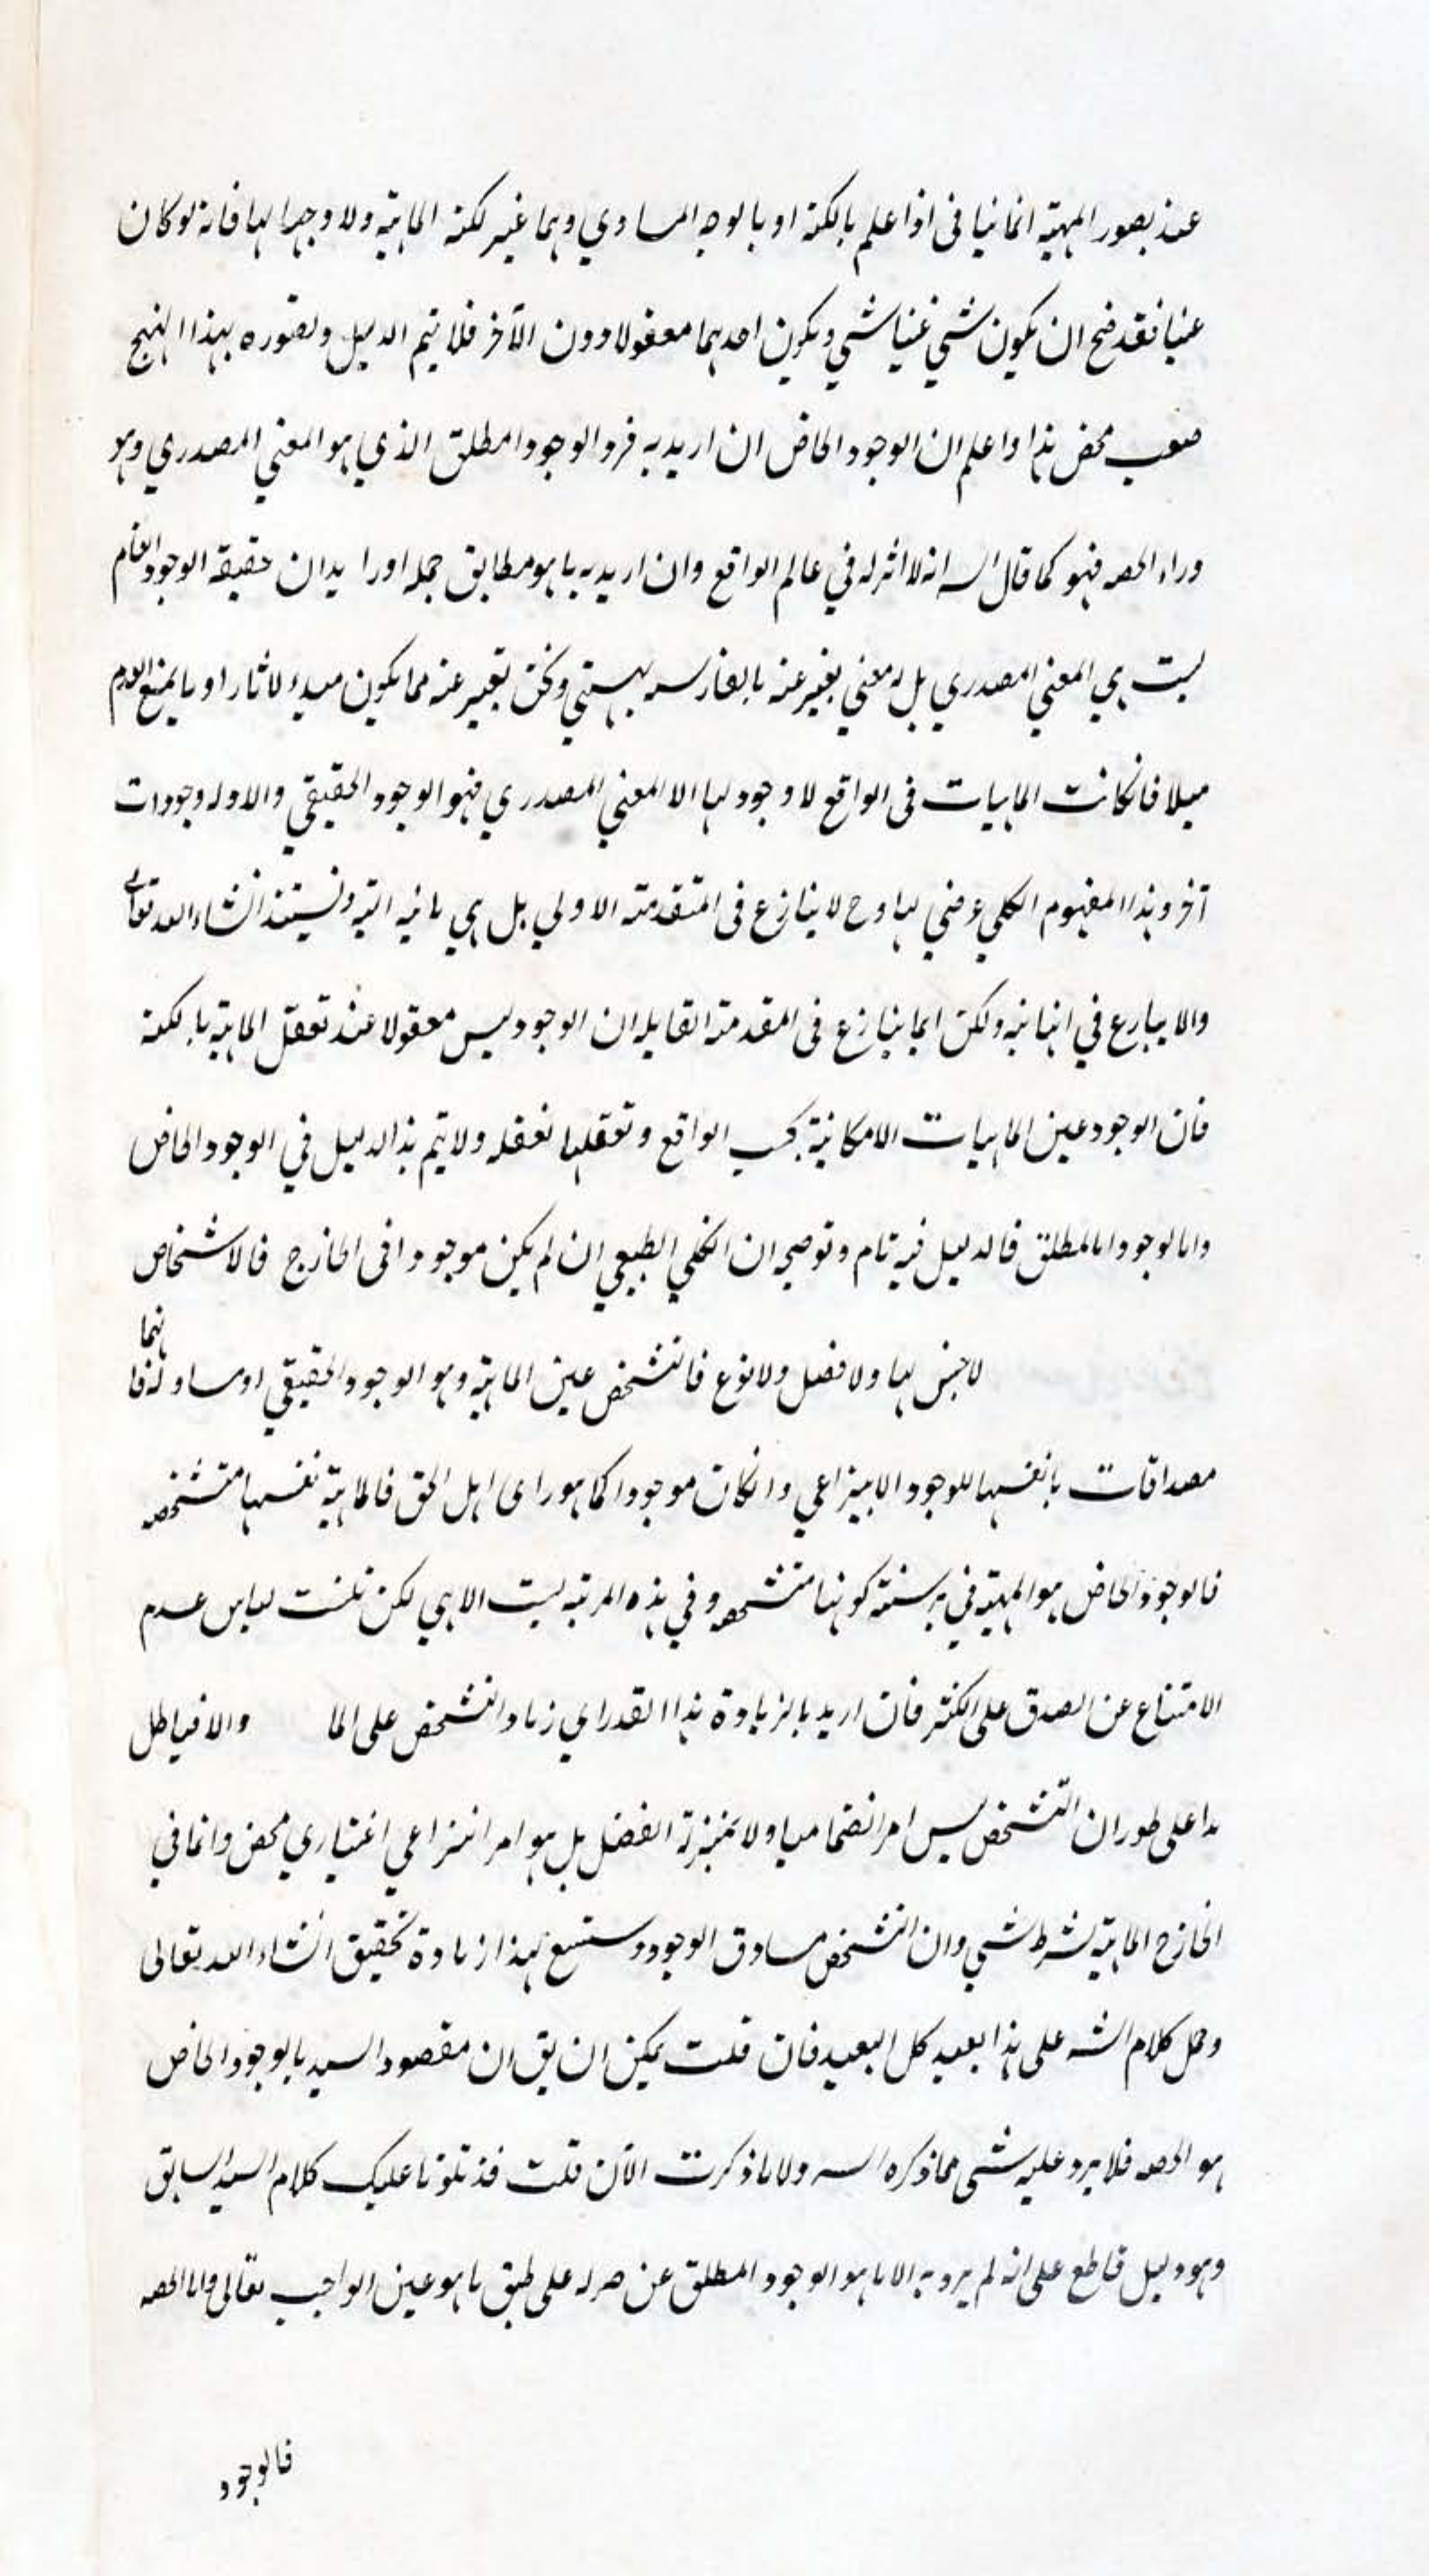 عند بصور المهية انما نيا فى اذا علم بالكنه او بالوجه المساوي وهما غير لكنه الماهية ولا وجها لها فانه لو كان
عينا فقد ضح ان يكون شي عينا شي ويكون احدهما معقولا دون الآخر فلا تيم الدليل وتصوره بهذا النهج
صعب محض هذا واعلم ان الوجود الخاص ان اريد به فرد الوجود المطلق الذي هو المعني المصدري وهو
وراء الحصه فهو كما قال انه لا اثر له في عالم الواقع وان اريد به ما هو مطابق حمله اورا يدان حقيقة الوجود العام
ليست هي المعني المصدري بل له معني يعبر عنه بالفارسيه بهستي ونحن تعبير عنه مما يكون مبدء لاثار او ما يمنع العدم
ميلا فانكانت الماهيات فى الواقع لا وجود لها الا المعني المصدري فهو الوجود الحقيقي والا وله وجودات
آخر وهذا المفهوم الكلي عرضي لها وح لا ينازع فى المتقدمته الاولي بل هي ثانيه اتيه انشاء الله تعالى
والا ينازع في ولكن انما ينازع فى المقدمته القايله ان الوجود ليس معقولا عند تعقل الماهية بالكنه
فان الوجود عين الماهيات الامكانية بحسب الواقع وتعقلها تعقله ولا يتم هذا الدليل في الوجود الخاص
واما الوجود المطلق فالدليل فيه تام وتوضيحه ان الكلي الطبيعي ان لم يكن موجودا فى الخارج فالاشخاص
لا جنس لها ولا فصل ولا نوع فالتشخص عين الماهية وهو الوجود الحقيقي او مساو له فانها
مصداقات بانفسها للوجود الانتزاعي وانكان موجودا كما هو راى اهل الحق فالماهية نفسها متشخصه
فالوجود الخاص هو المهية في مرتبة كونها متشخصه وفي هذه المرتبه ليست الا هي لكن تلبست لباس عدم
الامتناع عن الصدق على الكثير فان اريد بالزيادة هذا القدر اي زياد التشخص على الما والا فباطل
هذا على طور ان التشخص ليس امر انضماميا ولا بمنزلة الفصل بل هو امر انتزاعي اعتباري محض وانما في
الخارج الماهية بشرط شي وان التشخص مساوق الوجود وستسمع لهذا زيادة تحقيق انشاء الله تعالى
وحمل كلام الش على هذا بعيد كل البعيد فان قلت يمكن ان يق ان مقصود السيد بالوجود الخاص
هو الحصه فلا يرد عليه شى مما ذكره ولا ما ذكرت الآن قلت قد تلونا عليك كلام السيد السابق
وهو دليل قاطع على انه لم يرد به الا ما هو الوجود المطلق عن على طبق ما هو عين الواجب تعالى واما الحصه
فالوجود